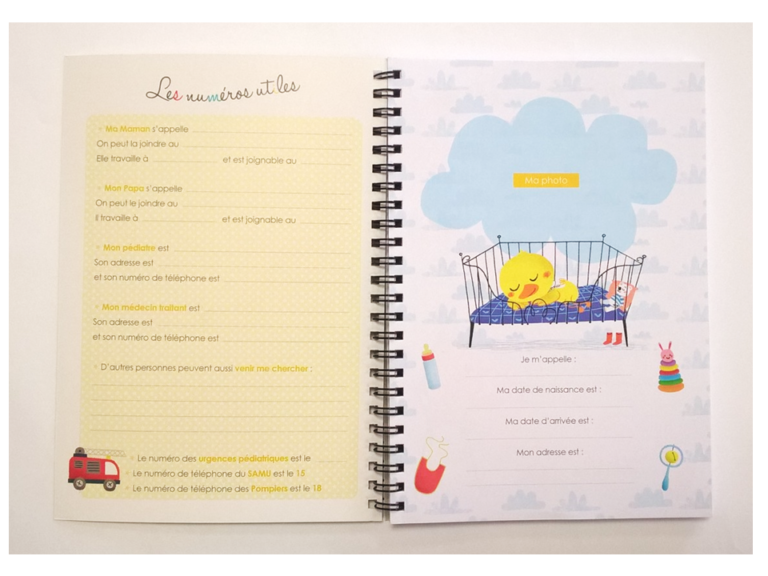 Les numéros utiles
Ma Maman s'appelle
On peut la joindre au
Elle travaille à et est joignable au
Mon Papa s'appelle
On peut le joindre au
Il travaille à et est joignable au
Mon pédiatre est
Son adresse est
et son numéro de téléphone est
Mon médecin traitant est
Son adresse est
et son numéro de téléphone est
D'autres personnes peuvent aussi venir me chercher :
Le numéro des urgences pédiatriques est le
Le numéro de téléphone du SAMU est le 15
Le numéro de téléphone des Pompiers est le 18
Ma photo
Je m'appelle :
Ma date de naissance est :
Ma date d'arrivée est :
Mon adresse est :